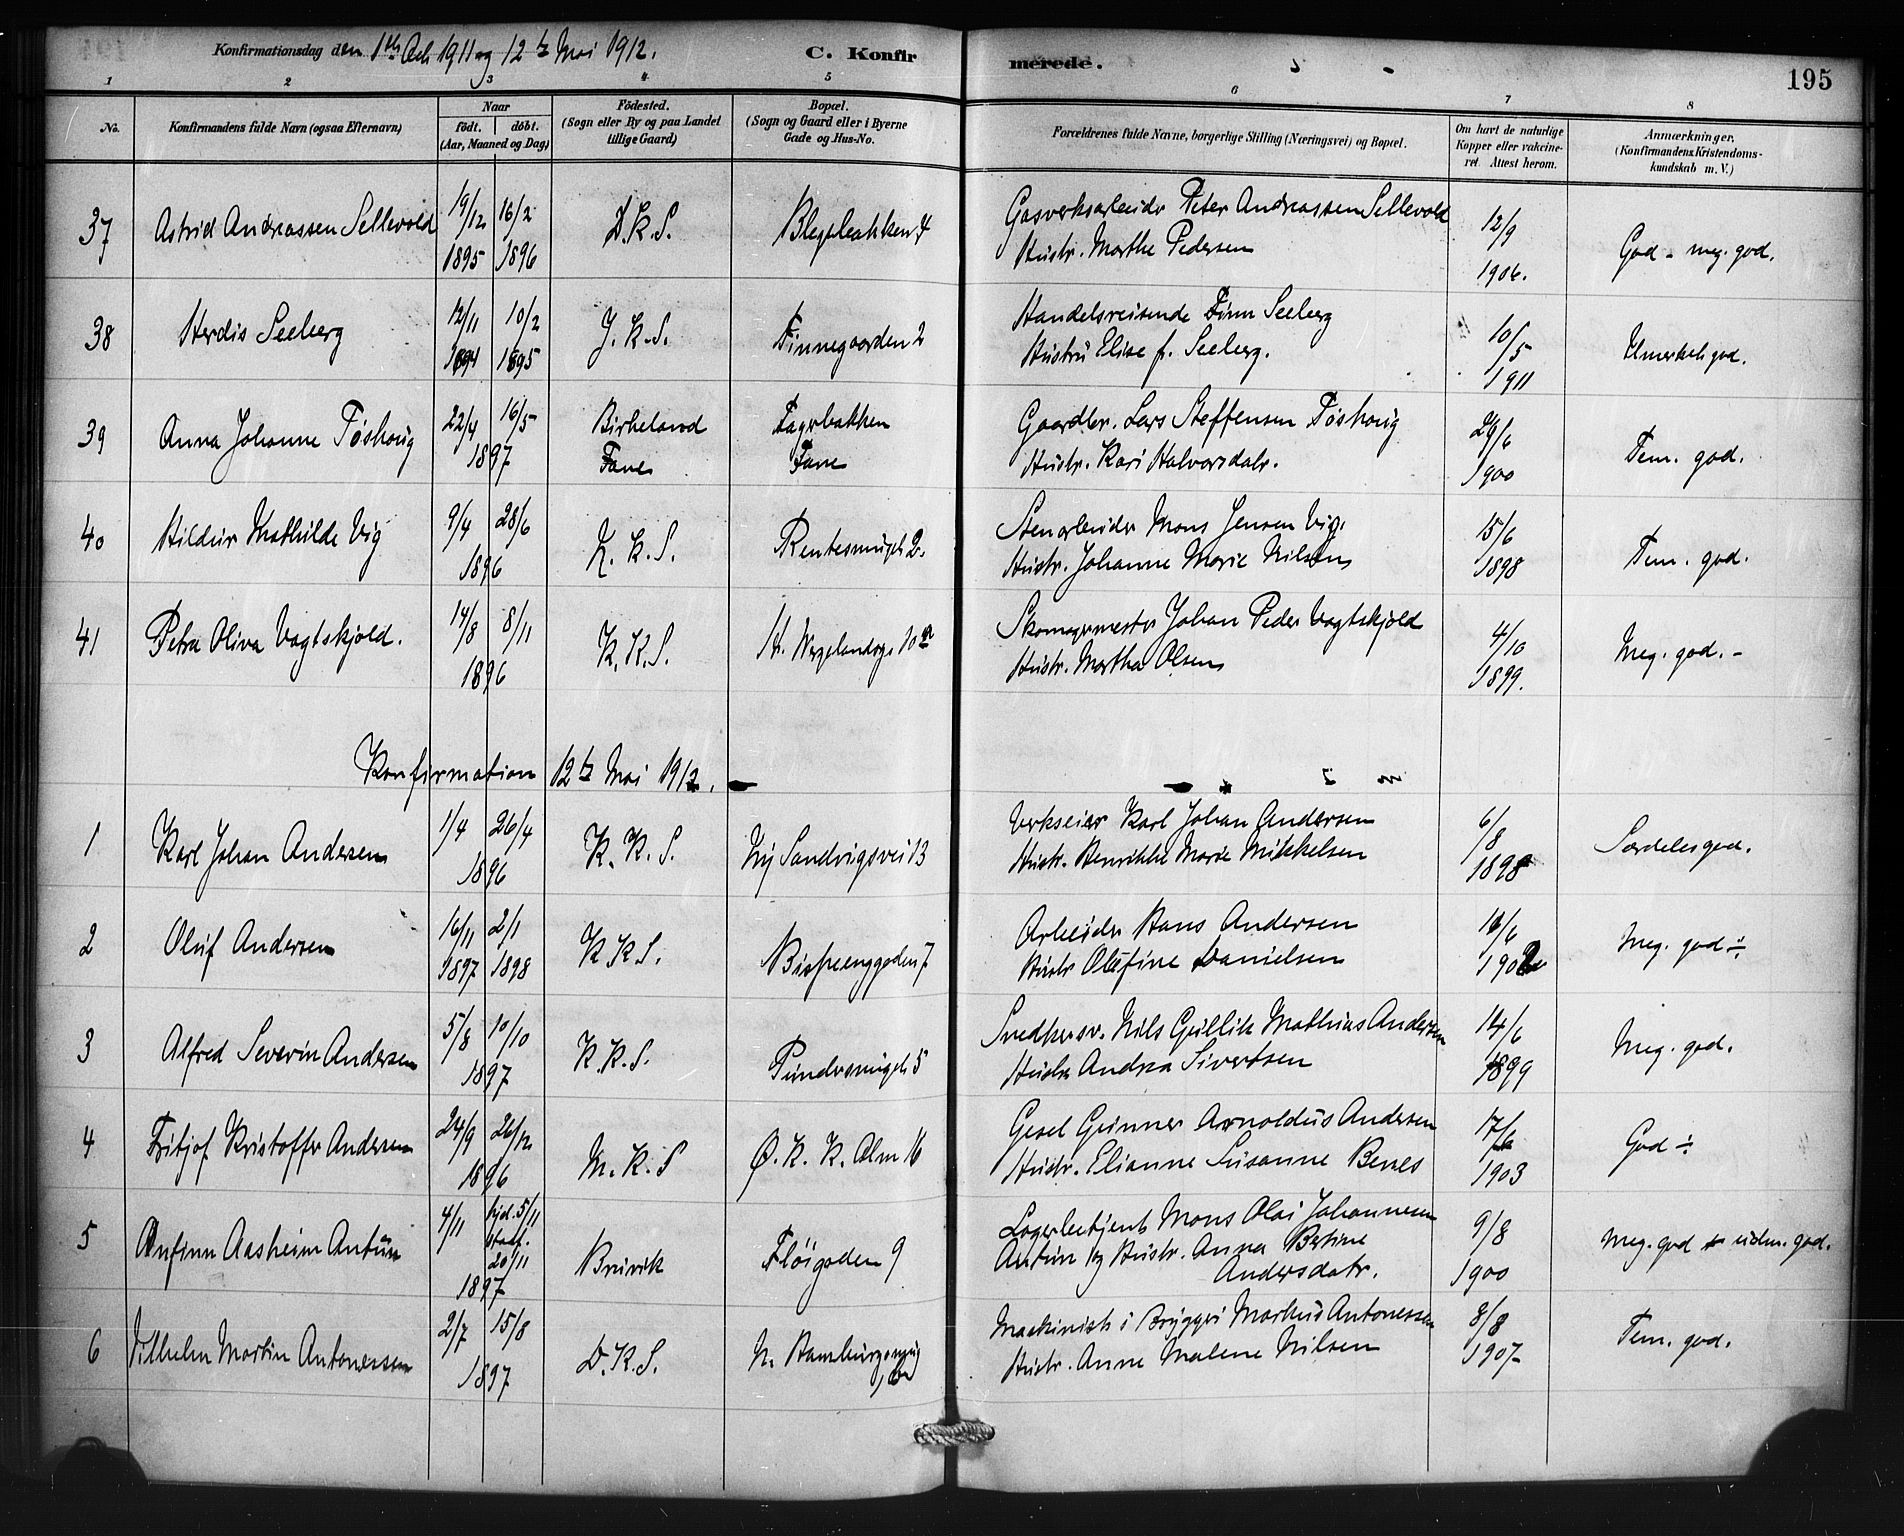 Konfirmationsdag den 1te Oct. 1911 og 12te Mai 1912.
C. Konfirmerede.
195
1 2 3 4 5 6 7 8
No.
Konfirmandens fulde Navn (ogsaa Efternavn)
Naar
födt. döbt.
(Aar, Maaned og Dag)
Födested.
(Sogn eller By og paa Landet
tillige Gaard)
Bopæl.
(Sogn og Gaard eller i Byerne
Gade og Hus-No.
Forældrenes fulde Navne, borgerlige Stilling (Næringsvei) og Bopæl.
Om havt de naturlige
Kopper eller vakcine-
ret. Attest herom.
Anmærkninger,
(Konfirmandens Kristendoms-
kundskab m. V.)
37 Astrid Andreassen Sellevold 19/12 1895 16/2 1896 D.K.S.
Gasverksarbeidr Peter Andreassen Sellevold
Hustr. Marthe Pedersen
12/9 1906. God - meg. god.
38 Herdis Seeberg 12/11 1894 10/2 1895 J.K.S. Finnegaarden 2
Handelsreisende Finn Seeberg
Hustru Elise f. Seeberg.
10/5 1911 Udmerket god.
39 Anna Johanne Tøskoug 22/4 16/5 1897 Birkeland Fane Fagerbakken Fane
Gaardbr. Lars Steffensen Tøskoug
Hustr. Kari Halvorsdatr.
1900 Tem. god.
40 Hildur Mathilde Vig 9/4 28/6 1896 Rentesmuget 2.
Stenarbeider Mons Jensen Vig.
Hustr. Johanne Marie Nilsens
15/6 1898 Tem. god.
41 Petra Oliva Vagtskjold. 14/8 8/11 1896 K.K.S. H. Wergelandsg. 10
Skomagermester Johan Peder Vagtskjold
Hustr. Martha Olsens
4/10 1899. Meg. god. -
Konfirmation 12te Mai 1912.
1 Karl Johan Andersen 1/4 26/4 1896 K.K.S. Ny Sandvigsvei 13
Verkseier Karl Johan Andersen
Hustr. Henrikke Marie Mikkelsen
6/8 1898 Særdeles god.
2 Oluf Andersen 16/11 1897 2/1 1898 K.K.S. Bispeenggaden 7
Arbeider Hans Andersen
Hustr Olefine Danielsen
1902 Meg. god ÷
3 Alfred Severin Andersen 5/8 10/10 1897 K.K.S.
Snedkersv. Nils Gullik Mathias Andersen
Hustr Andrea Sivertsen
14/6 1899 Meg. god.
4 Fritjof Kristoffer Andersen 24/9 26/12 1896 M.K.S Ø. K. K. Alm 16
Gunner Arnoldus Andersen
Hustr. Elianne Susanne Benes
17/6 1903 God ÷
5 Onfinn Aasheim Antun 4/11 hjd. 5/11 stadf. 20/11 1897 Bruvik Fløigaden 9
Lagerbetjent Mons Olai Johannesen
Antun og Hustr. Anna Bertine
Andersdatr.
9/8 1900 Meg. god udm. god.
6 Vilhelm Martin Antonessen 2/7 15/8 1897 D.K.S.
Maskinist i Bryggeri Markus Antonessen
Hustr. Anne Malene Nilsen
8/8 1907 Tem. god.